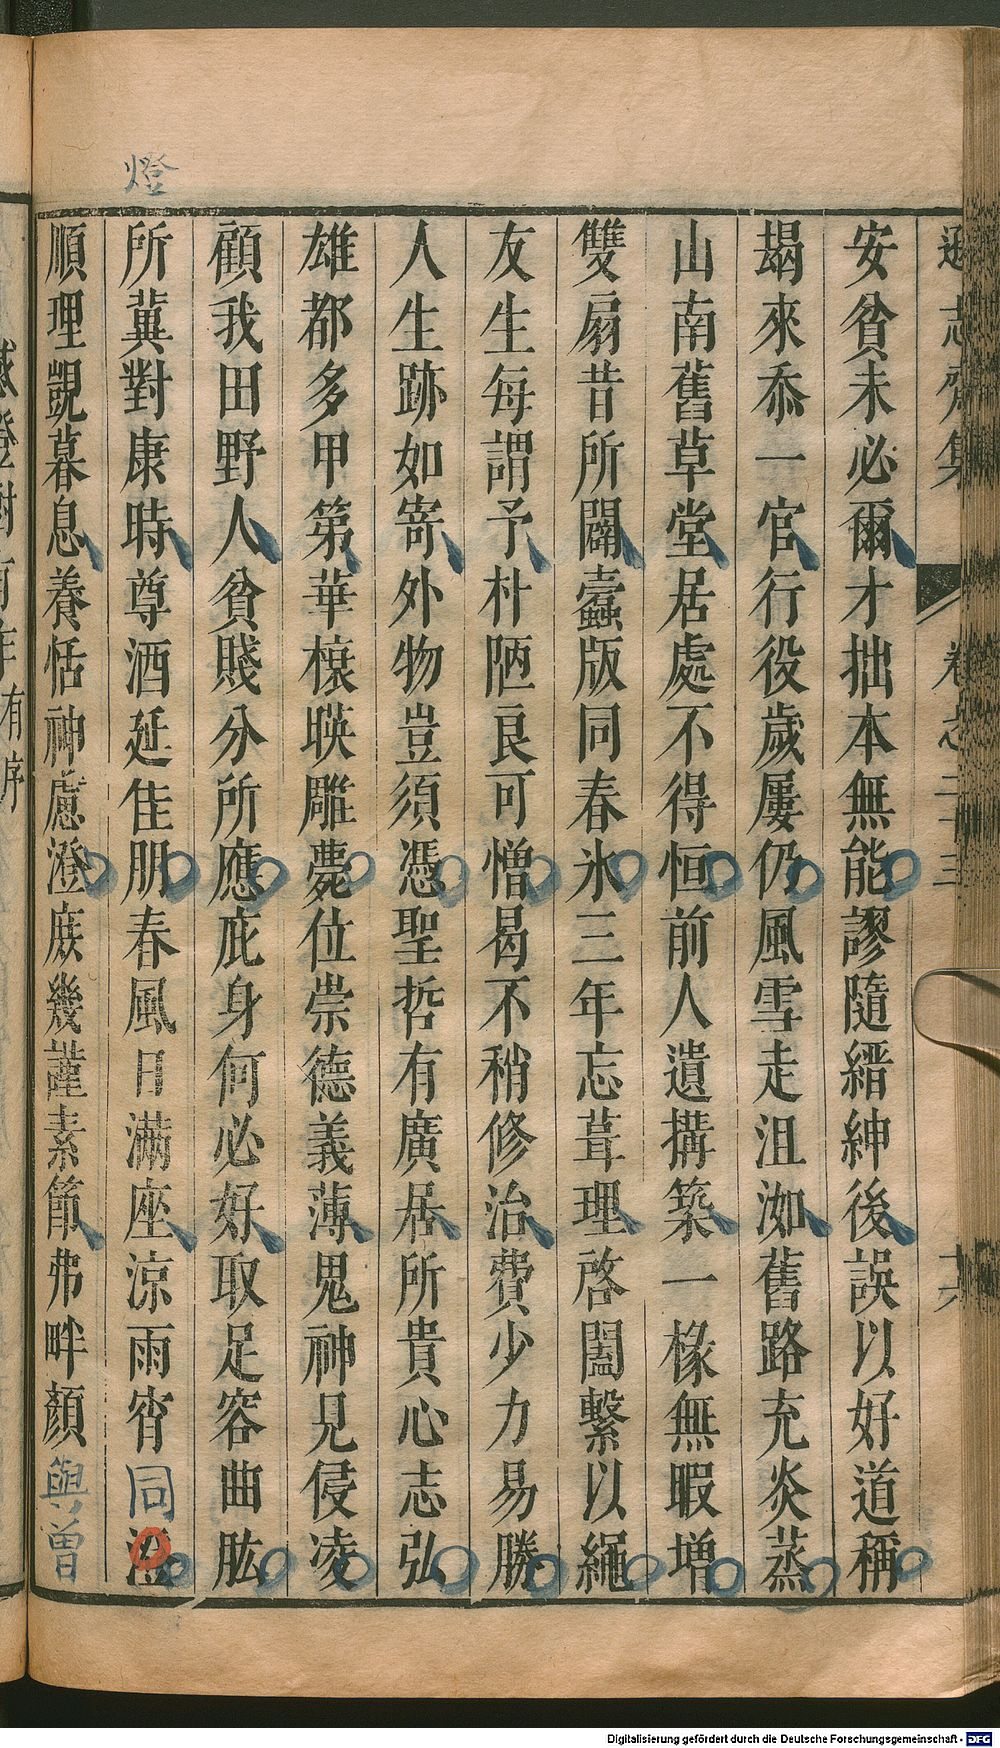 遜志齋集 卷之二十三 十六
安貧未必爾才拙本無能謬隨縉紳後誤以好道稱
朅來忝一官行役歲屢仍風雪走沮洳舊路充炎蒸
山南舊草堂居處不得恒前人遺搆築一椽無暇增
雙扇昔所闢蠹版同春氷三年忘葺理啓闔繫以繩
友生每謂予朴陋良可憎曷不稍修治費少力易勝
人生跡如寄外物豈須憑聖哲有廣居所貴心志弘
雄都多甲第華榱暎雕甍位崇德義薄鬼神見侵凌
顧我田野人貧賤分所應庇身何必好取足容曲肱
所冀對康時尊酒延佳朋春風日滿座凉雨宵同澄
燈
順理覬暮息養恬神慮澄庶幾謹素節弗畔顏與曾
有序
Digitalisierung gefördert durch die Deutsche Forschungsgemeinschaft - DFG